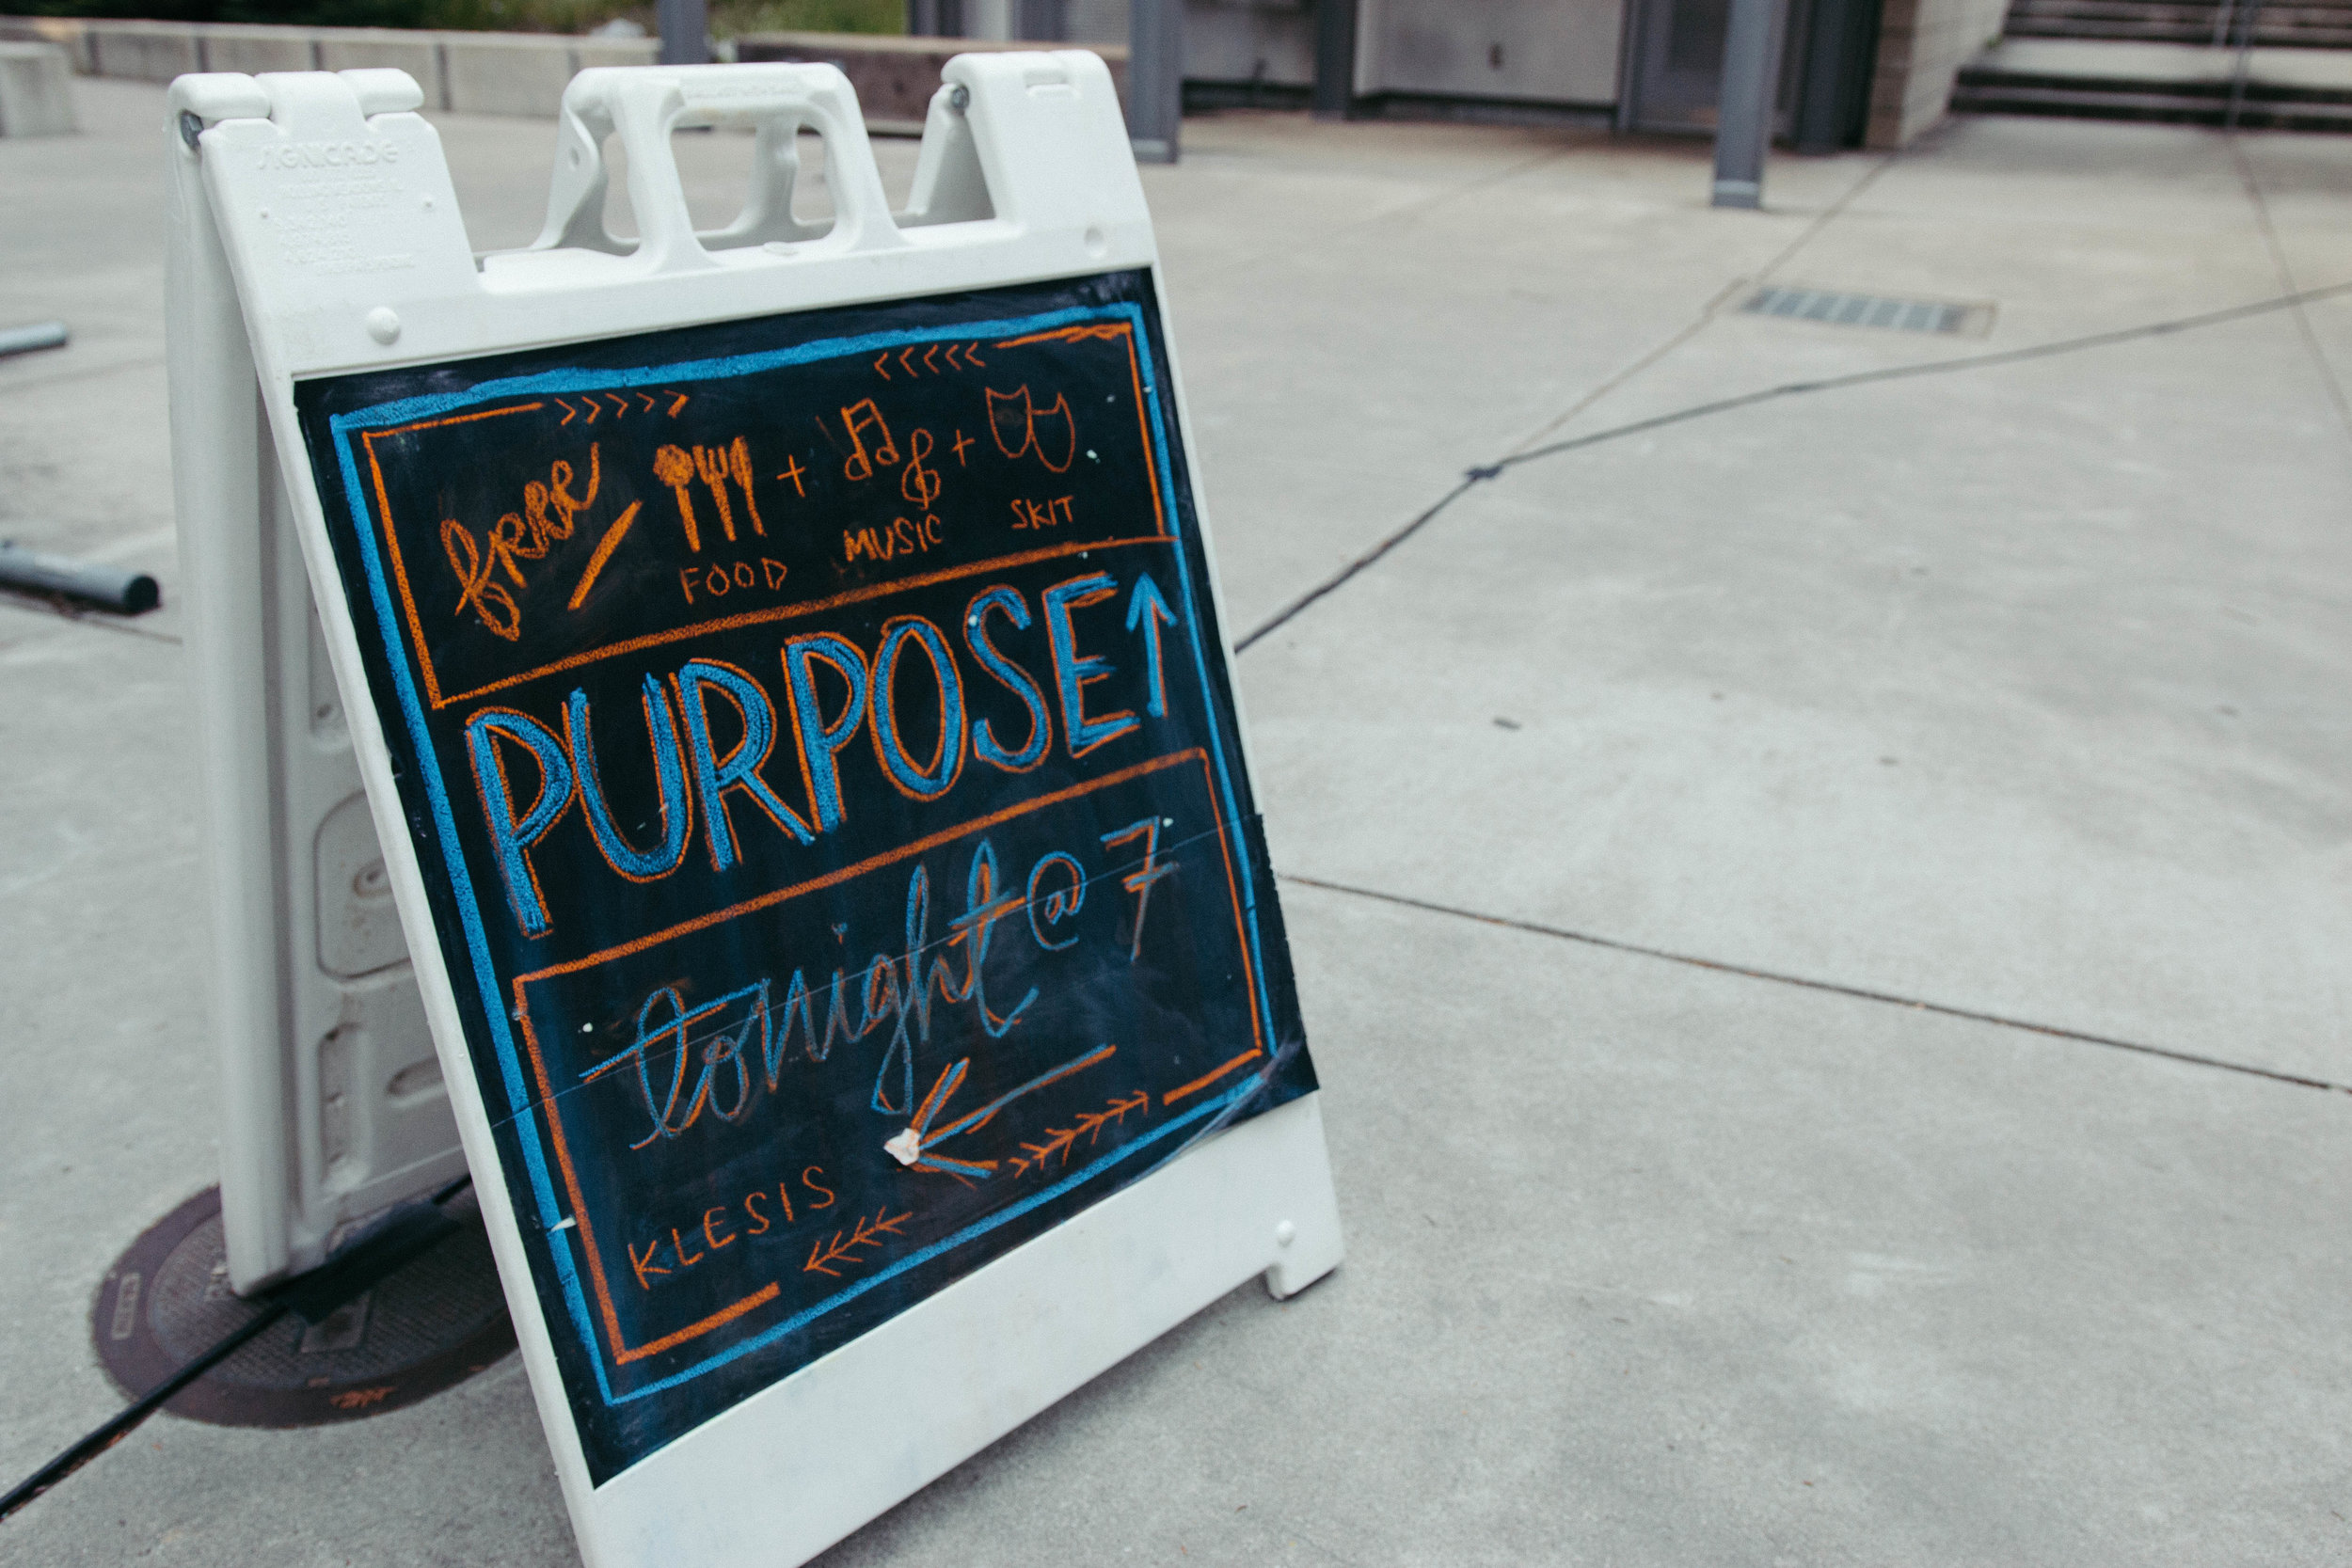 SIGNICADE
free
FOOD + MUSIC + SKIT
PURPOSE
tonight @ 7
KLESIS